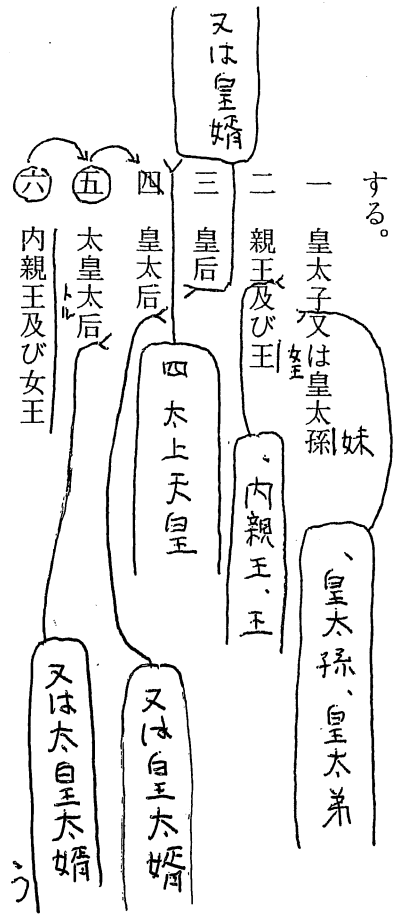 する。
一 皇太子又は皇太孫
妹
、皇太孫、皇太弟
二 親王及び王
女王
、内親王、王
三 皇后
又は皇婿
四 皇太后
四 太上天皇
又は皇太婿
五 太皇太后
トル
又は太皇太婿
六 内親王及び女王
う